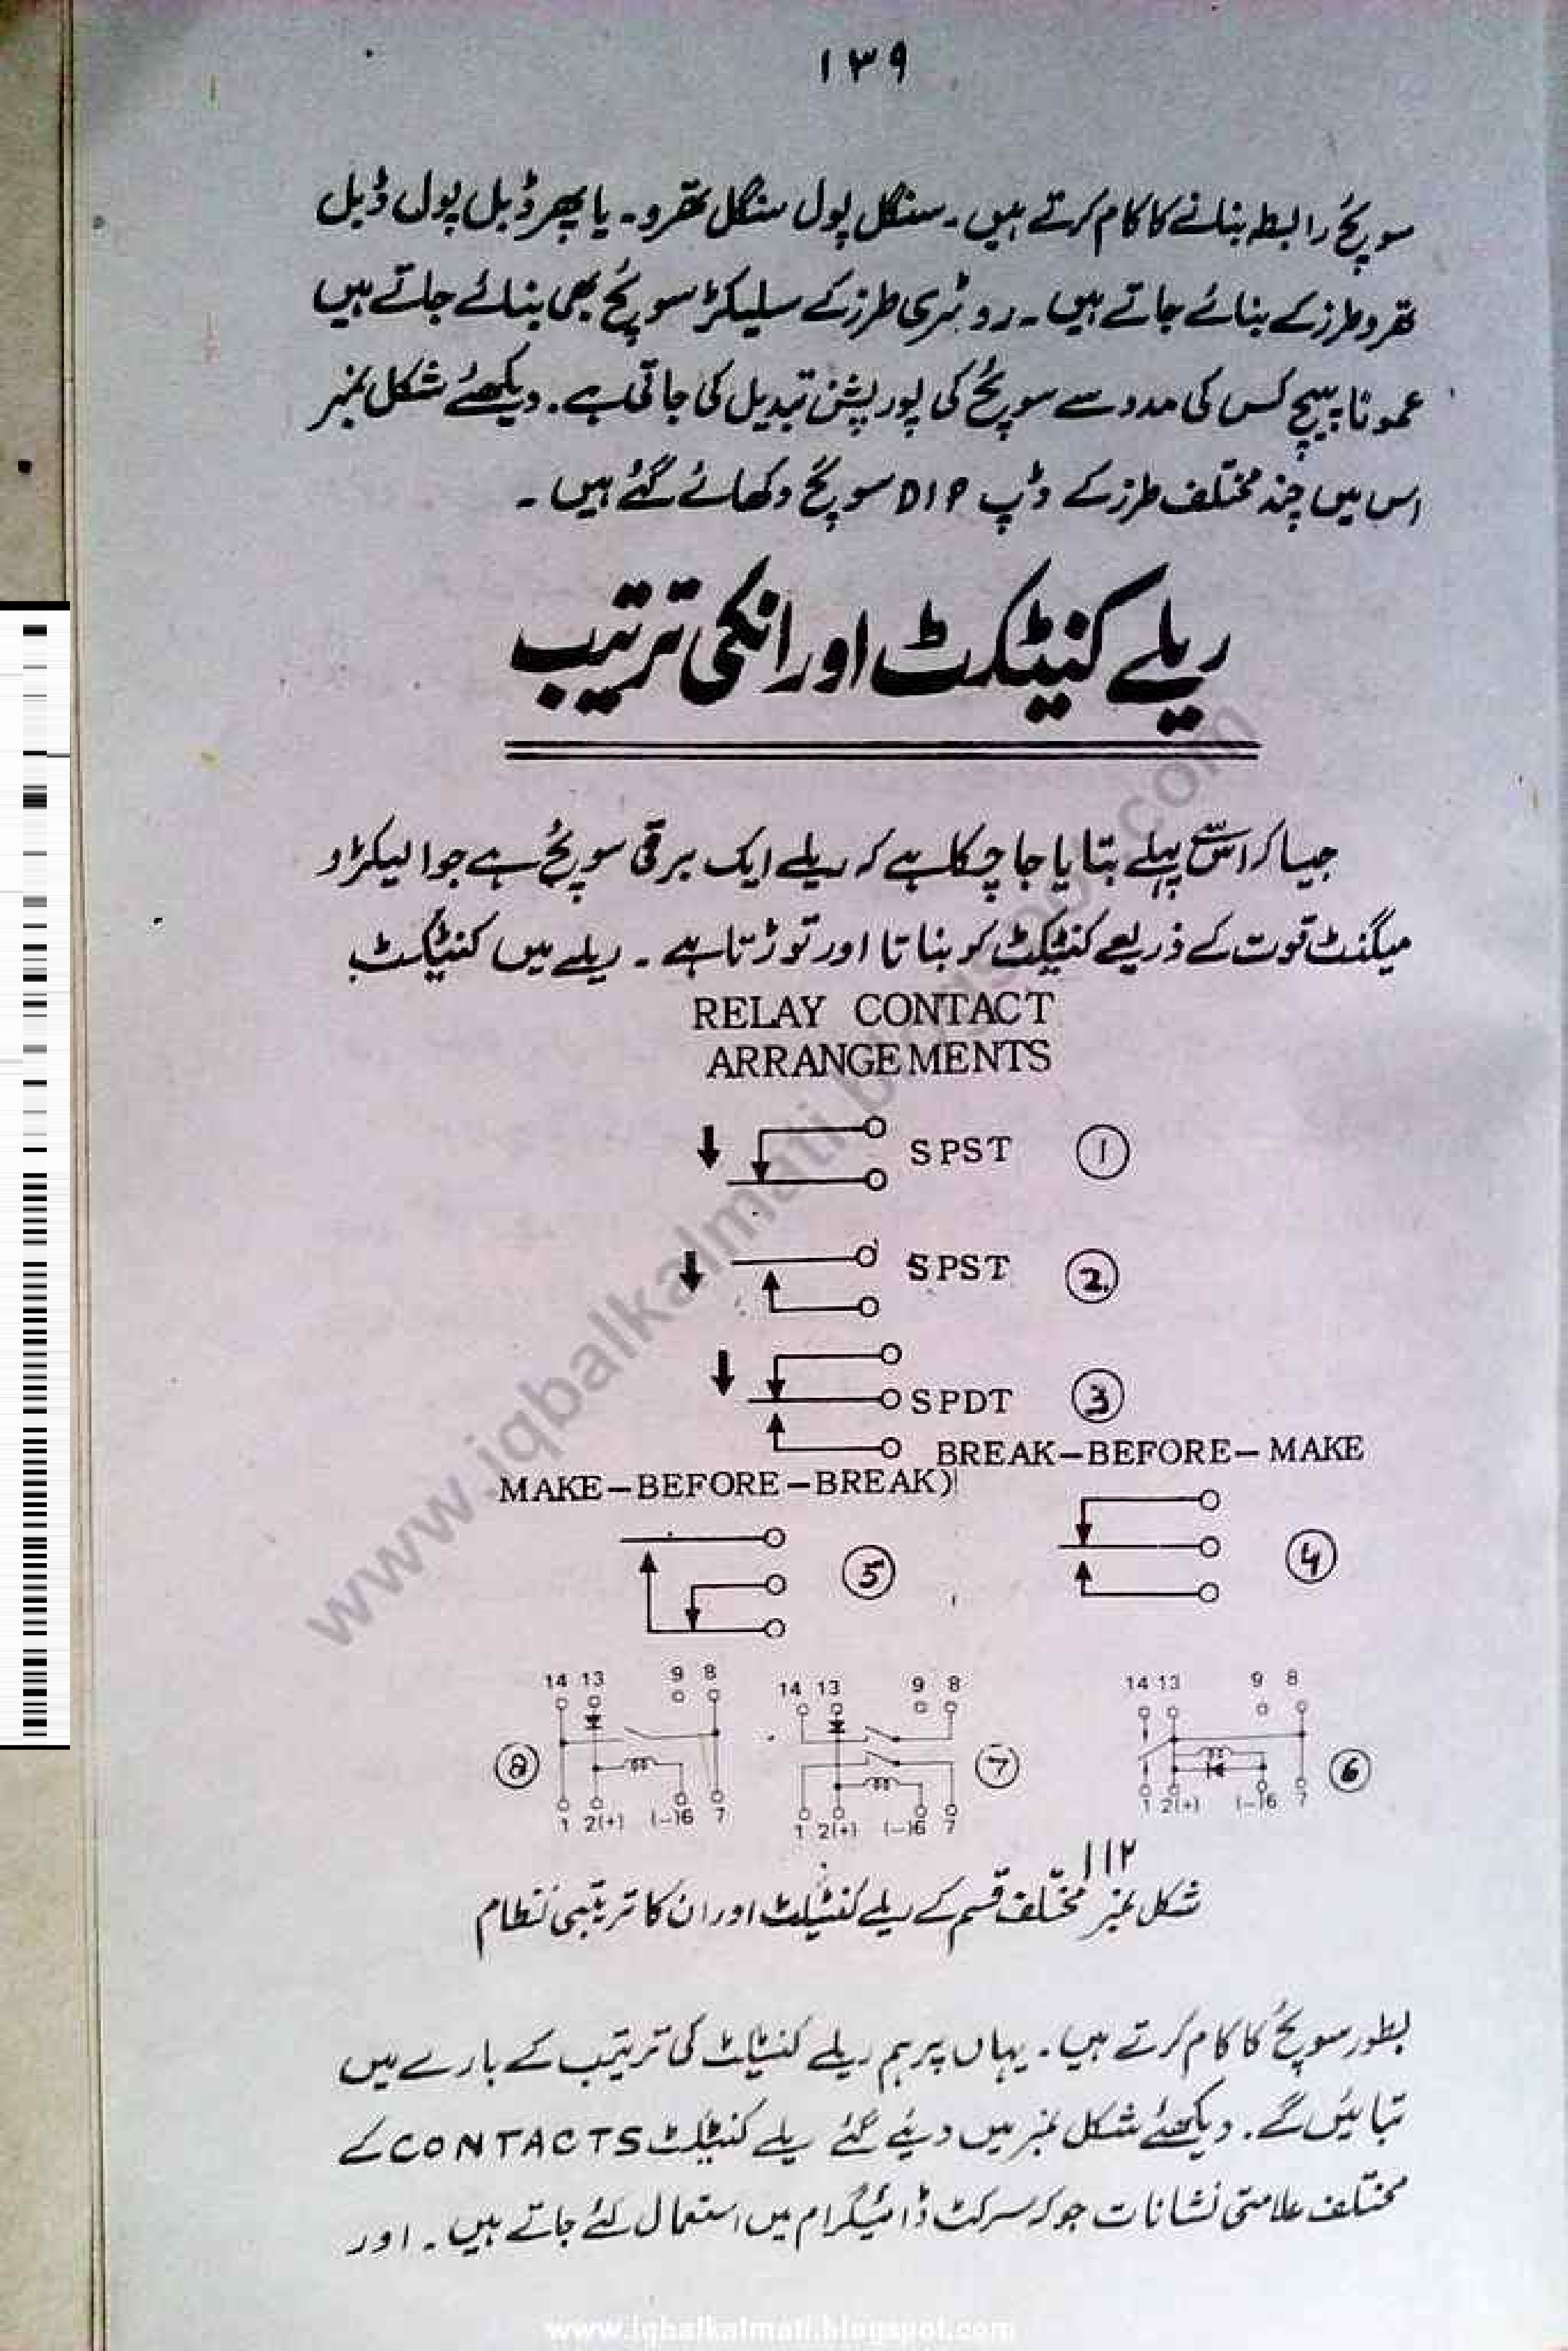 ۱۳۹
سوئچ رابطہ بنانے کا کام کرتے ہیں۔ سنگل پول سنگل تھرو۔ یا پھر ڈبل پول ڈبل
تھرو طرز کے بنائے جاتے ہیں۔ روٹری طرز کے سلیکڑ سوئچ بھی بنائے جاتے ہیں
عموناً پیچ کس کی مدد سے سوئچ کی پوزیشن تبدیل کی جاتی ہے۔ دیکھئے شکل نمبر
اس میں چند مختلف طرز کے ڈپ DIP سوئچ دکھائے گئے ہیں۔
ریلے کنیٹکٹ اور انکی ترتیب
جیسا کہ اس سے پہلے بتایا جا چکا ہے کہ ریلے ایک برقی سوئچ ہے جو الیکڑو
میگنٹ قوت کے ذریعے کنٹیکٹ کو بناتا اور توڑتا ہے۔ ریلے میں کنٹیکٹ
RELAY CONTACT
ARRANGEMENTS
SPST 1
SPST 2
SPDT 3
BREAK–BEFORE–MAKE
MAKE–BEFORE–BREAK)
5 4
14 13 9 8 14 13 9 8 14 13 9 8
8 7 6
1 2(+) (–)6 7 1 2(+) (–)6 7 1 2(+) (–)6 7
شکل نمبر ۱۱۲ مختلف قسم کے ریلے کنٹیکٹ اور ان کا ترتیبی نظام
بطور سوئچ کا کام کرتے ہیں۔ یہاں پر ہم ریلے کنٹیکٹ کی ترتیب کے بارے میں
بتائیں گے۔ دیکھئے شکل نمبر میں دیئے گئے ریلے کنٹیکٹ CONTACTS کے
مختلف علامتی نشانات جو کہ سرکٹ ڈائیگرام میں استعمال کئے جاتے ہیں۔ اور
www.iqbalkalmati.blogspot.com
www.iqbalkalmati.blogspot.com